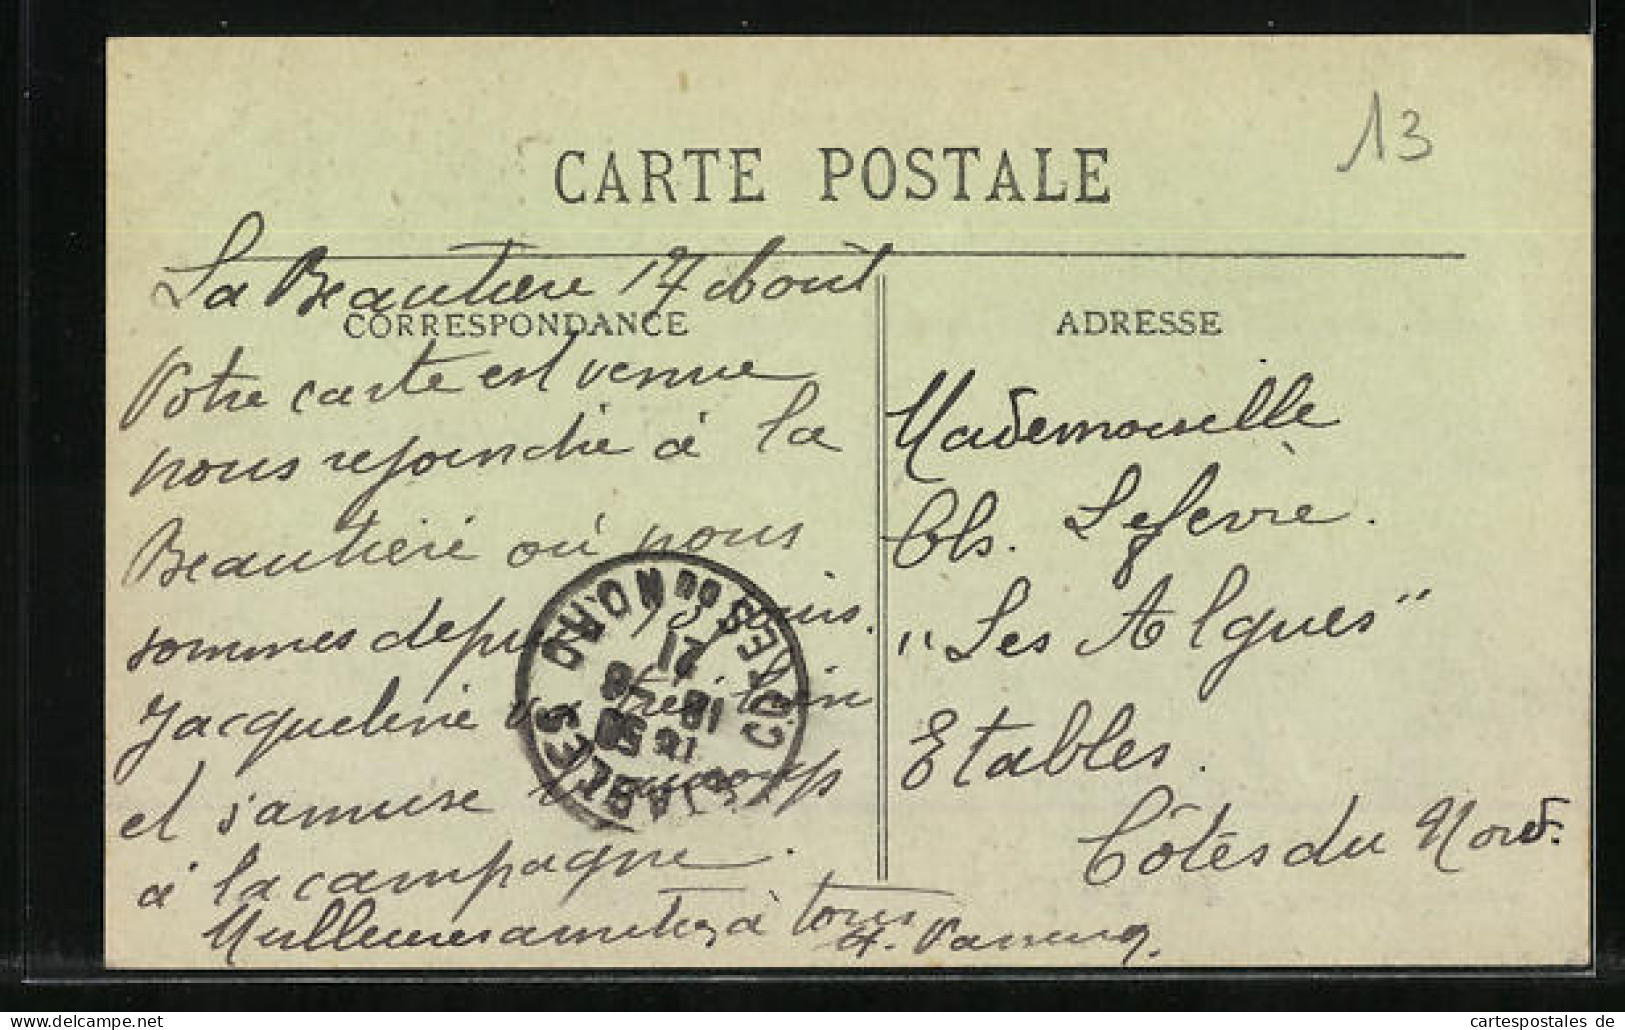 13
CARTE POSTALE
La Beautière 17 Août
CORRESPONDANCE
Votre carte est venue
nous rejoindre à la
Beautière où nous
sommes depuis 
Jacqueline va très bien
et s'amuse beaucoup
à la campagne.
Meilleures amitiés à tous
ADRESSE
Mademoiselle
Ch. Lefèvre.
"Les Algues"
Etables.
Côtes du Nord.
ETABLES CÔTES DU NORD
www.oldthing.net
cartespostales de